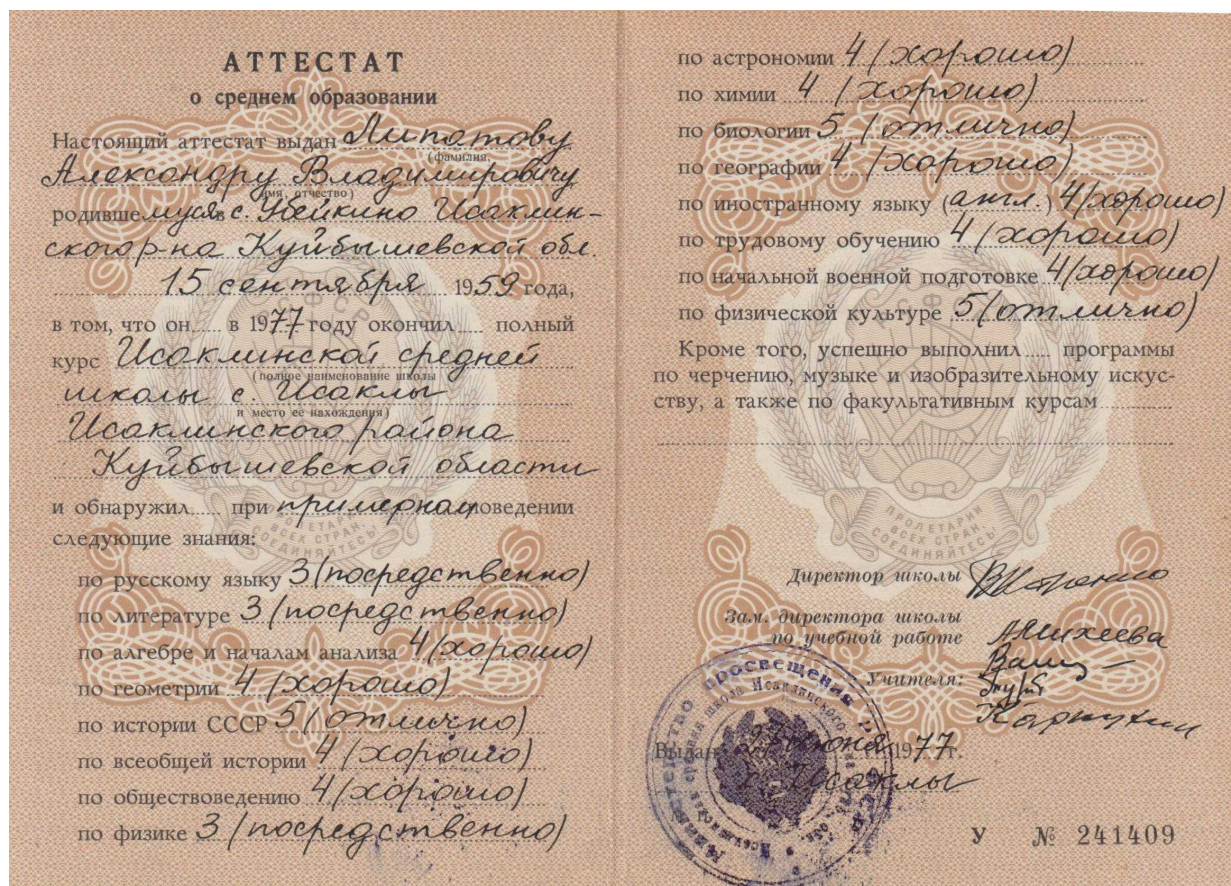 АТТЕСТАТ
о среднем образовании
Настоящий аттестат выдан Липатову
(фамилия,
Александру Владимировичу
имя, отчество)
родившемуся в с. Убейкино Исаклин-
ского р-на Куйбышевской обл.
15 сентября 1959 года,
в том, что он в 1977 году окончил полный
курс Исаклинской средней
(полное наименование школы
школы с. Исаклы
и место ее нахождения)
Исаклинского района
Куйбышевской области
и обнаружил при примерном поведении
следующие знания:
по русскому языку 3 (посредственно)
по литературе 3 (посредственно)
по алгебре и началам анализа 4 (хорошо)
по геометрии 4 (хорошо)
по истории СССР 5 (отлично)
по всеобщей истории 4 (хорошо)
по обществоведению 4 (хорошо)
по физике 3 (посредственно)
по астрономии 4 (хорошо)
по химии 4 (хорошо)
по биологии 5 (отлично)
по географии 4 (хорошо)
по иностранному языку (англ.) 4 (хорошо)
по трудовому обучению 4 (хорошо)
по начальной военной подготовке 4 (хорошо)
по физической культуре 5 (отлично)
Кроме того, успешно выполнил программы
по черчению, музыке и изобразительному искус-
ству, а также по факультативным курсам
ПРОЛЕТАРИИ
ВСЕХ СТРАН,
СОЕДИНЯЙТЕСЬ
ПРОЛЕТАРИИ
ВСЕХ СТРАН,
СОЕДИНЯЙТЕСЬ
Директор школы
Зам. директора школы
по учебной работе АМихеева
Учителя:
Выдан июня 1977 г.
с. Исаклы
Министерство просвещения
средняя школа Исаклинского
У № 241409